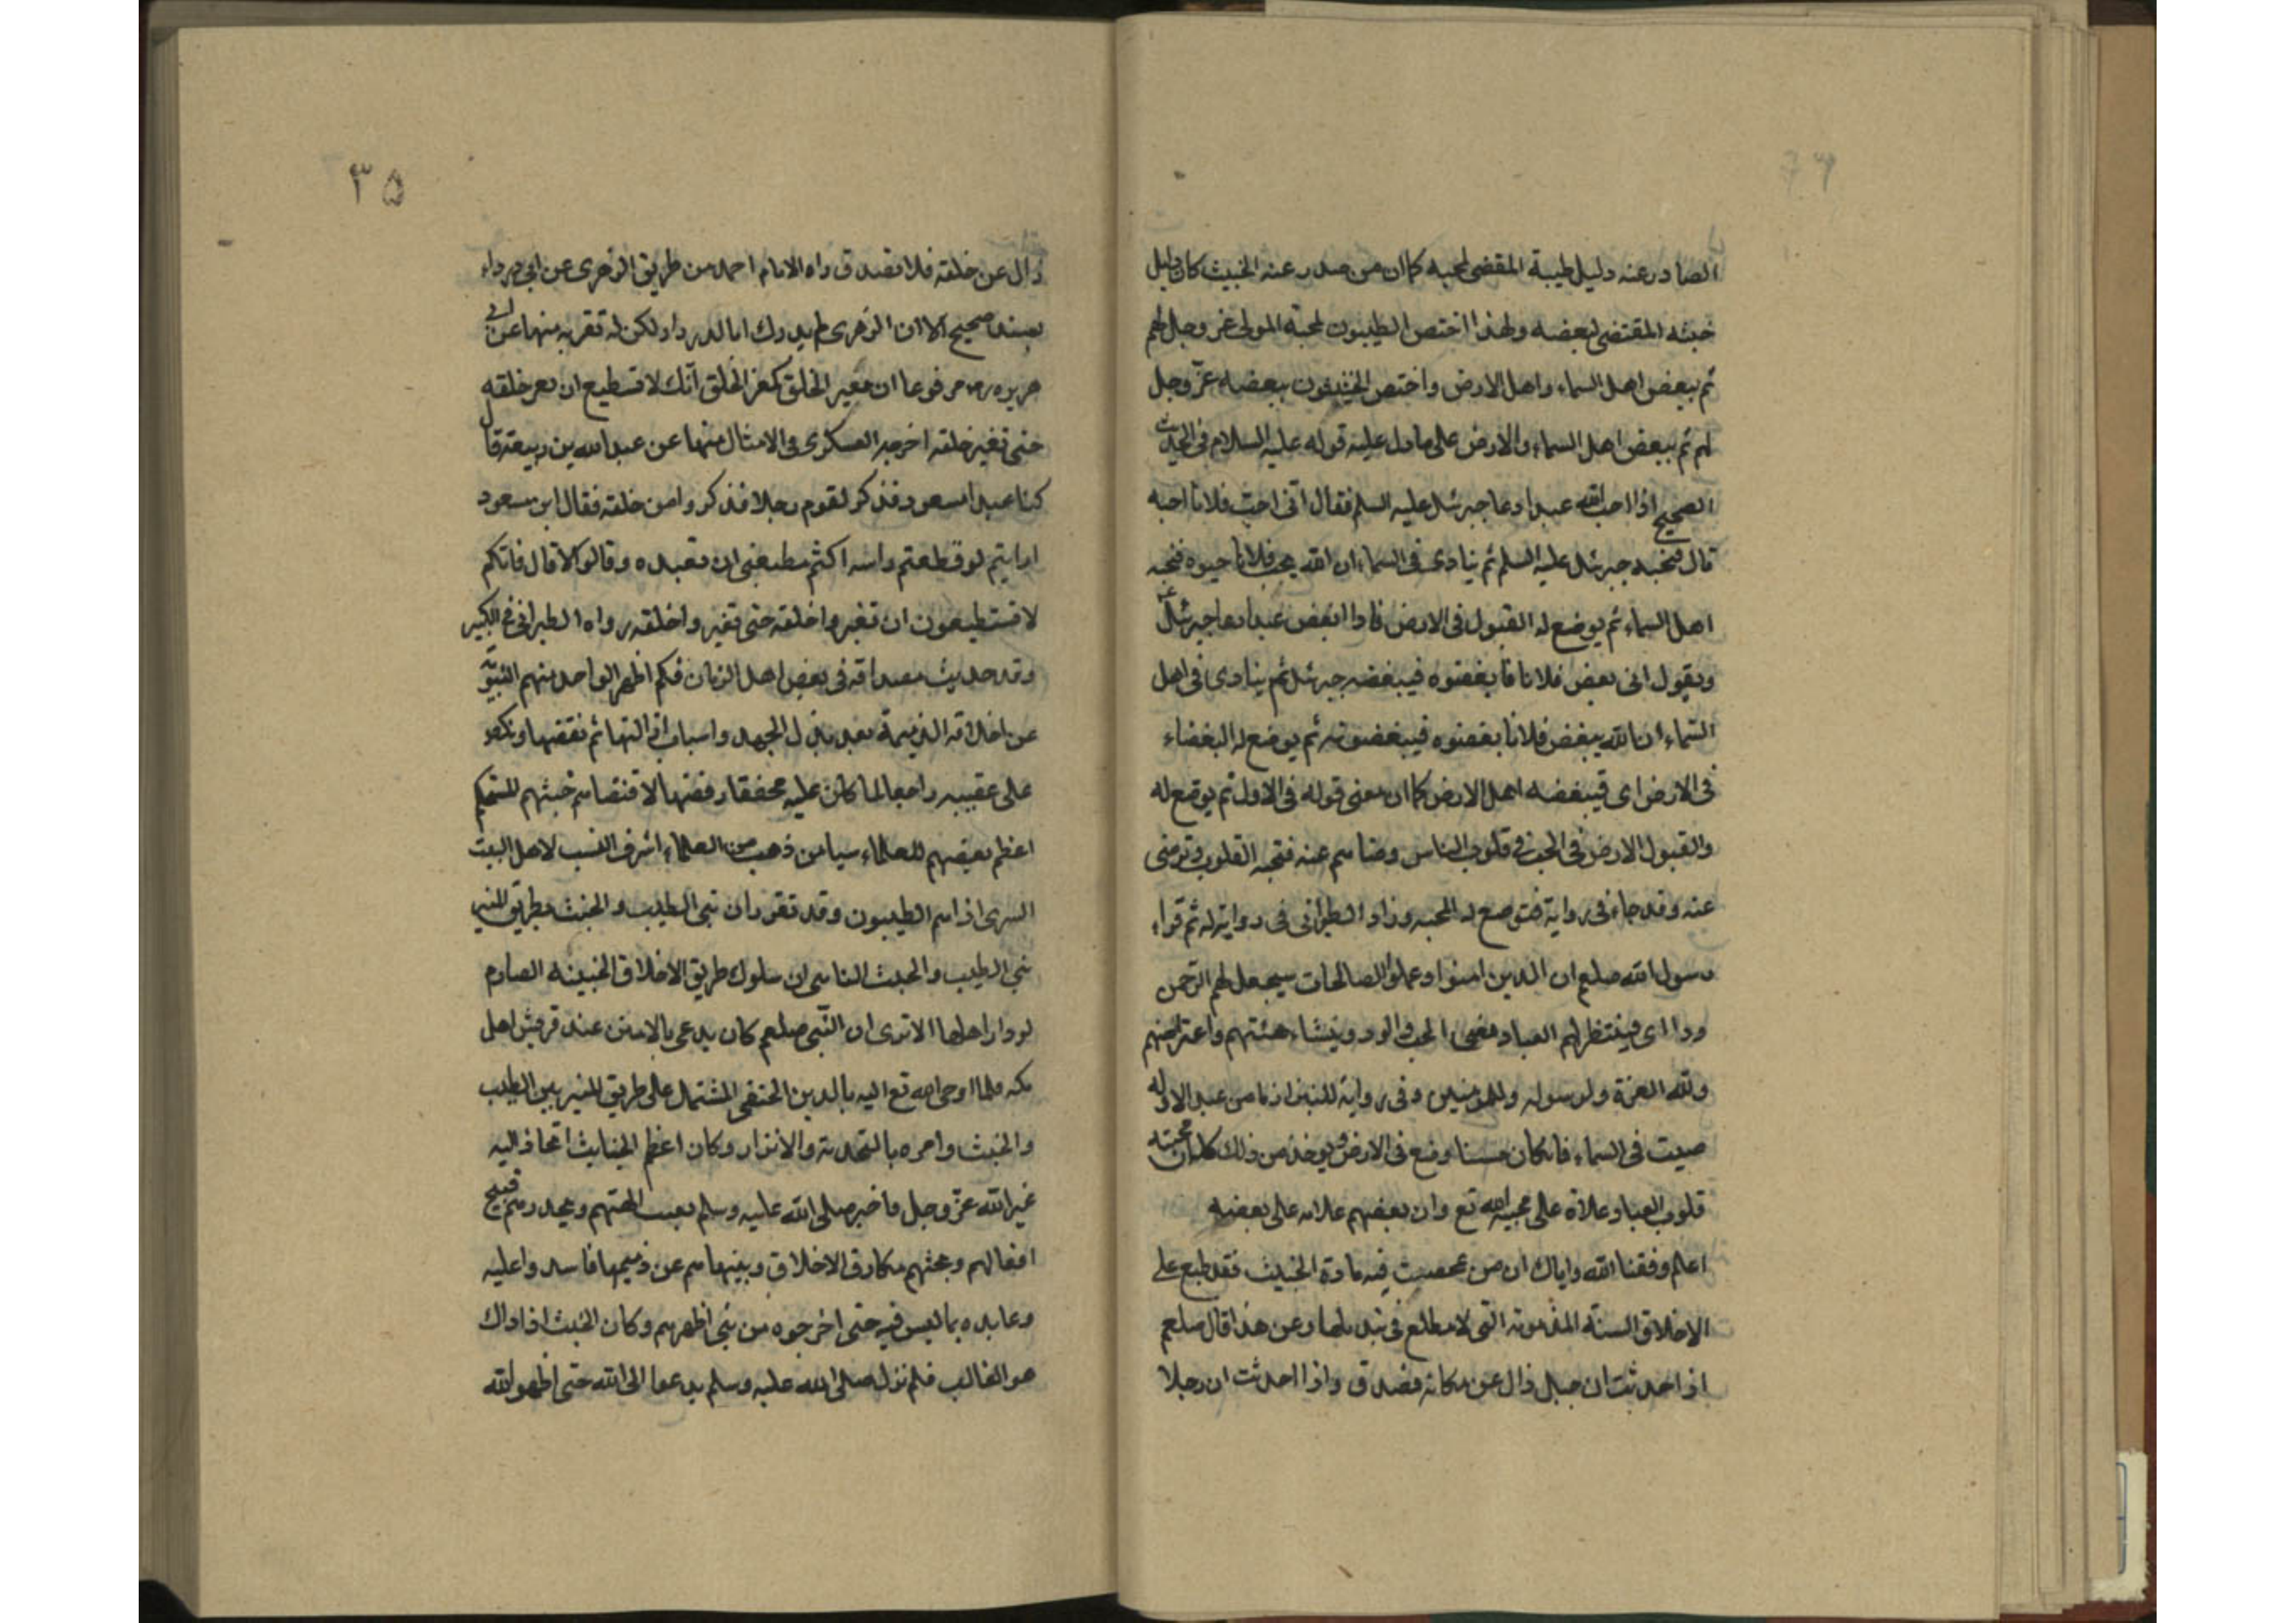 الصادر عنه دليل طيبة المقضى لمحبه كما ان من صدر عنه الخبيث كان دليل
خبثه المقتضى لبعضه ولهذا اختص الطيبون لمحبة المولى عز وجل لهم
ثم ببعض اهل السماء واهل الارض واختص الخبيثون ببعضه عزّ وجل
لهم ثم ببعض اهل السماء والارض على ما دل عليه قوله عليه السلام فى الحديث
الصحيح اذا احب الله عبدا دعا جبرئيل عليه السلم فقال انى احب فلانا احبه
قال فيحبه جبرئيل عليه السلم ثم ينادى فى السماء ان الله يحب فلانا حبوه فيحبه
اهل السماء ثم يوضع له القبول فى الارض فاذا ابغض عبدا دعا جبرئيل
ويقول انى بعض فلانا فابغضوه فيبغضه جبرئيل ثم ينادى فى اهل
السماء ان الله يبغض فلانا بغضوه فيبغضونه ثم يوضع له البغضاء
فى الارض اى فيبغضه اهل الارض كما ان معنى قوله فى الاول ثم يوضع له
والقبول الارض فى الحب فى قلوب الناس ورضاهم عنه فتحبه القلوب وترضى
عنه وقد جاء فى رواية فتوضع له المحبه وزاد الطبرانى فى رواية له ثم قراء
رسول الله صلعم ان الذين امنوا وعملوا الصالحات سيجعل لهم الرحمن
ودا اى فينتظر لهم العباد معنى الحب والود وينشاء هئتهم واعتراضهم
ولله العزة ولرسوله وللمؤمنين وفى رواية للبزار ما من عبد الا وله
صيت فى السماء فان كان حسنا وضع فى الارض ويوخذ من ذلك كله ان محبته
قلوب العباد علاة على محبة الله تع وان بعضهم علامه على بعضه
اعلم وفقنا الله واياك ان من محصيت فيه مادة الخبيث فقد طبع على
الاخلاق السئة المذمونه التى لا مطلع فى تبديلها وعن هذا قال صلعم
اذا حدثت ان جبل زال عن مكانه فصدق واذا احدثت ان رجلا
٣٥
زال عن خلقته فلا تصدق رواه الامام احمد من طريق الزهرى عن ابى درداء
بسند صحيح الا ان الزهرى لم يدرك ابا الدرداء ولكن له تقربه منها عن ابى
هريره رض مرفوعا ان مغير الخلق كمغير الخلق انك لا تسطيع ان تغير خلقه
حتى تغير خلقته اخرجه العسكرى فى الامثال منها عن عبد الله بن ربيعة قال
كنا عبد ابن مسعود فذكر لقوم رجلا فذكروا من خلقته فقال ابن مسعود
ارايتم لو قطعتم راسه اكنتم تسطيعنى ان تعيده وقالوا لا قال فانكم
لا تستطيعون ان تغيروا خلقته حتى تغيروا خلقته رواه الطبرانى فى الكبير
وقد حديث مصداقه فى بعض اهل الزمان فكم اظهر الواحد منهم التبوّيه
عن اخلاقه الذميمة بعد بذل الجهد واسباب ازالتها ثم نقضها ونكص
على عقبيه راجعا لما كان عليه محفقا رفضها لاقتضاهم خبثهم المستحكم
اعظم بعضهم للعلماء سيا من ذهب من العلماء اشرف النسب لاهل البيت
السرى اذ اهم الطيبون وقد تقرر ان تبى الطيب والخبث بطريق التمييز
بنى الطيب والخبث الناسى ان سلوك طريق الاخلاق الخبيثه الصادم
لودار اهلها الا ترى ان النبى صلعم كان يدعى بالامين عند قريش اهل
مكه فلما اوحى الله تع اليه بالدين الحنفى المشتمل على طريق التميز بين الطيب
والخبث وامره بالتحذير والانذار وكان اعظم الخبايث اتخاذ اليه
غير الله عزّ وجل فاخبر صلى الله عليه وسلم بعيب الهتهم ويحذرهم قبيح
افعالهم وبحثهم مكارق الاخلاق وبينها هم عن ذميمها فاسدوا عليه
وعابده بما ليس فيه حتى اخرجوه من بنى اظهرهم وكان الخبث اذا ذاك
هو الغالب فلم نزل صلى الله عليه وسلم يدعوا الى الله حتى اظهر الله